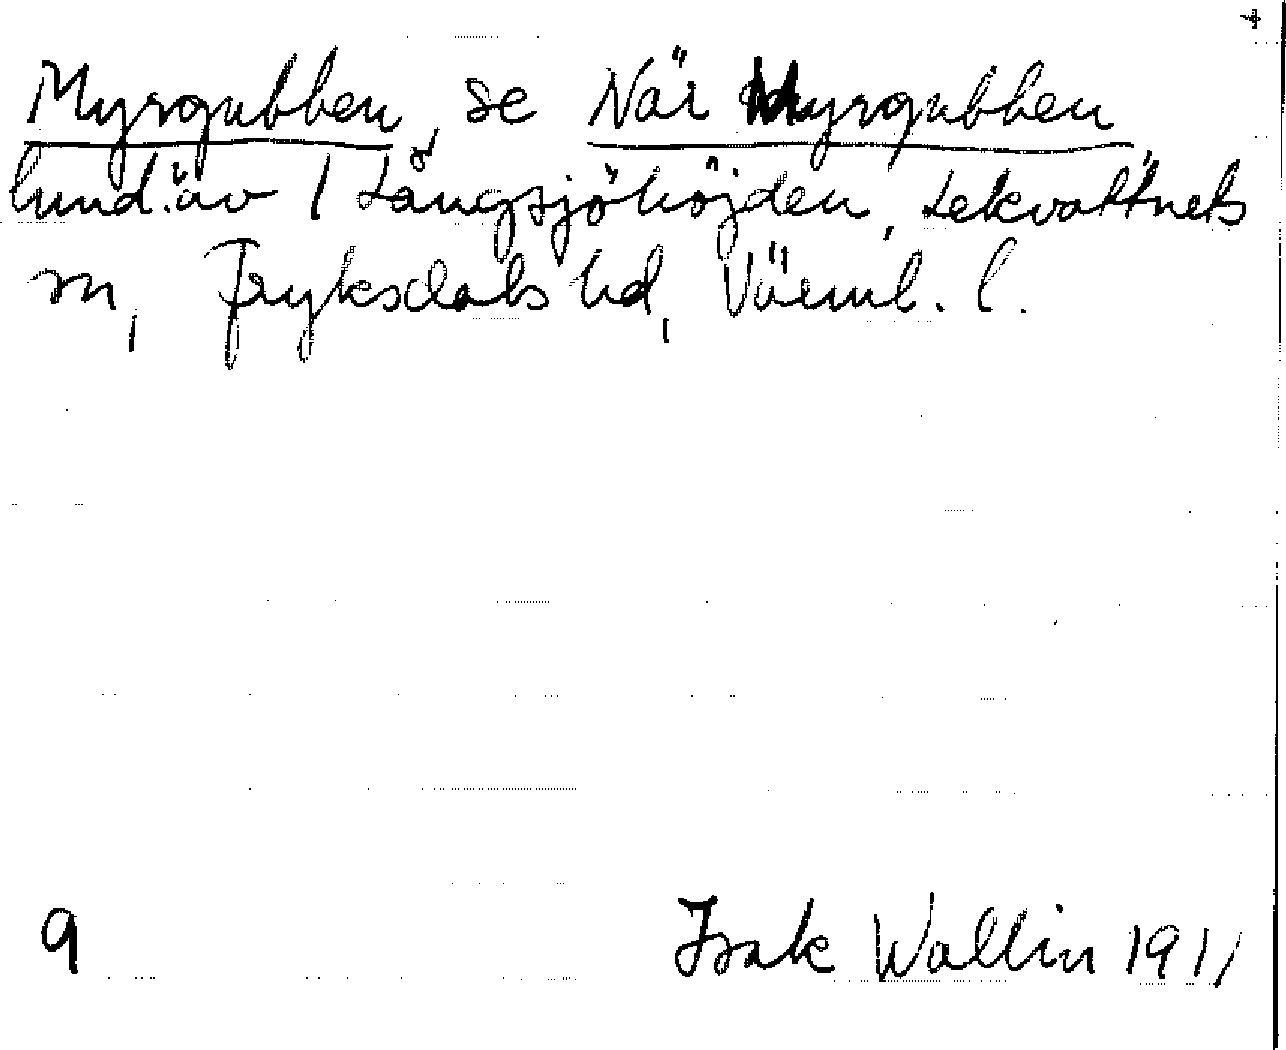 +
Myrgubben, se När Myrgubben
hund.äv / Långsjöhöjden, Lekvattnets
sn, Fryksdals hd, Värml. l.
9 Isak Wallin 1911